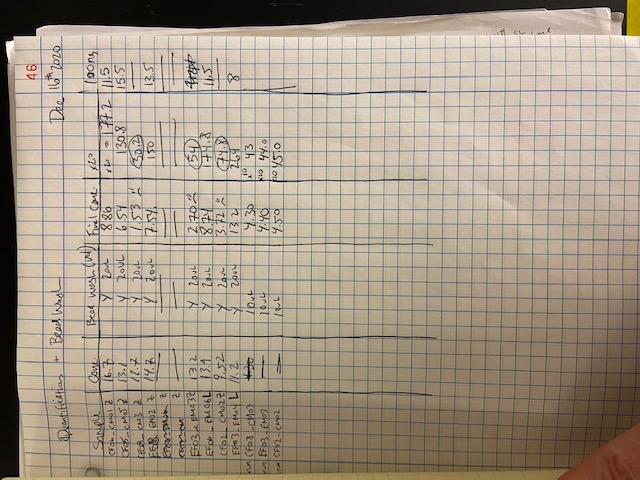 46
Quantification + Bead Wash Dec 16th 2020
Sample Conc Bead Wash (Vol) Final Conc x20 100ng
CF04_CM01 Z 16.7 Y 20uL 8.86 x20 = 177.2 11.5
CF05_CM05 Z 13.1 Y 20uL 6.54 130.8 15.5
CF08_CM3 Z 12.7 Y 20uL 1.53 30.2
EF08_EM02 Z 14.7 Y 20uL 7.54 150 13.5
Z
Z
EF03_EM03 Z 13.2 Y 20uL 2.70 54
EF06_EM06 L 13.9 Y 20uL 8.74 174.8 11.5
CF02_CM02 Z 9.52 Y 20uL 3.72 74.8
EF03_EM04 L 11.2 Y 20uL 13.2 264 8
CF03_CM03 10uL 4.30 x10 43
EF03_EM03 — 10uL 4.40 x10 44.0
CF02_CM02 — 10uL 4.50 x10 45.0